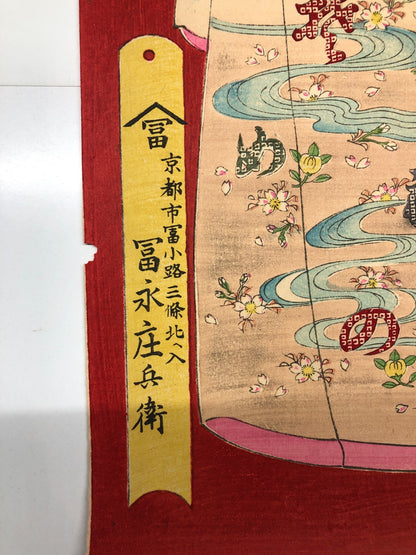 冨
京都市冨小路三條北へ入
冨永庄兵衛
め
の